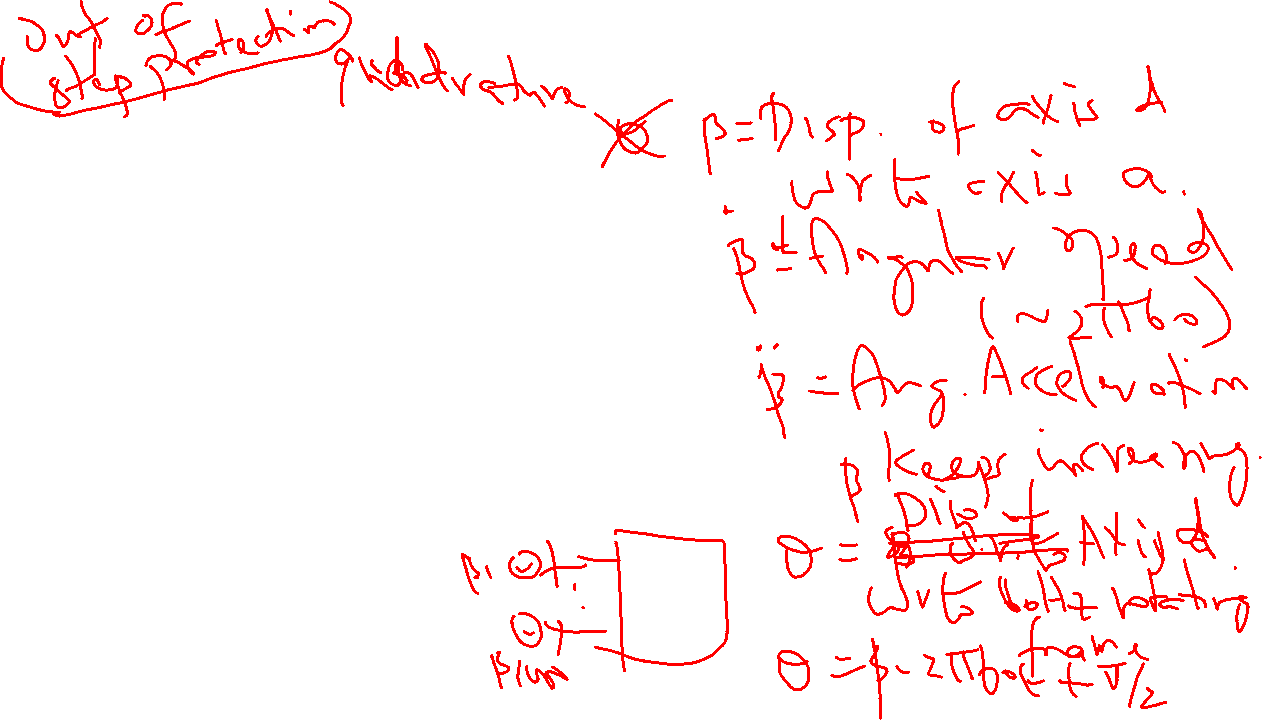 Out of
step protection
quadrature
β = Disp. of axis d
wrto axis a.
β̇ = Angular speed
(~ 2π60)
β̈ = Ang. Acceleration
β keeps increasing.
θ = Disp of Axis d
wrto 60Hz rotating
frame
θ = β - 2π60t + π/2
β1